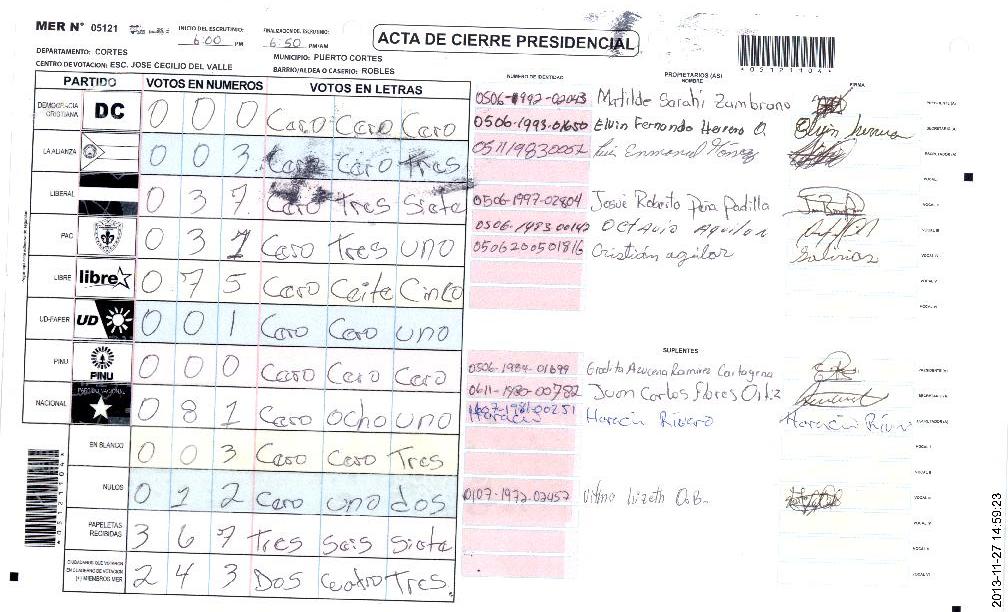 MER N° 05121
INICIO DEL ESCRUTINIO: 6:00 PM
FINALIZACION DEL ESCRUTINIO: 6:50 PM/AM
ACTA DE CIERRE PRESIDENCIAL
*05121104*
DEPARTAMENTO: CORTES
MUNICIPIO: PUERTO CORTES
CENTRO DE VOTACION: ESC. JOSE CECILIO DEL VALLE
BARRIO/ALDEA O CASERIO: ROBLES
PARTIDO VOTOS EN NUMEROS VOTOS EN LETRAS
DEMOCRACIA CRISTIANA DC 0 0 0 Cero Cero Cero
LA ALIANZA 0 0 3 Cero Cero Tres
LIBERAL 0 3 7 Cero Tres Siete
PAC 0 3 1 Cero Tres uno
LIBRE libre 0 7 5 Cero Ceite Cinco
UD-FAPER UD 0 0 1 Cero Cero uno
PINU PINU 0 0 0 Cero Cero Cero
NACIONAL 0 8 1 Cero ocho uno
EN BLANCO 0 0 3 Cero Cero Tres
NULOS 0 1 2 Cero uno dos
PAPELETAS RECIBIDAS 3 6 7 Tres Seis Siete
CIUDADANOS QUE VOTARON EN CUADERNO DE VOTACION (+) MIEMBROS MER 2 4 3 Dos cuatro Tres
*05121104*
NUMERO DE IDENTIDAD PROPIETARIOS (AS) NOMBRE FIRMA
0506-1992-02043 Matilde Sarahi Zambrano PRESIDENTE (A)
0506-1993-01650 Elvin Fernando Herrera O. SECRETARIO (A)
0511198300057 Luis Enmanuel ESCRUTADOR (A)
VOCAL I
0506-1997-02804 Josue Roberto Peña Padilla VOCAL II
0506-1983 00142 OCTAVIO AGUILAR VOCAL III
0506200501816 Cristián aguilar VOCAL IV
VOCAL V
VOCAL VI
SUPLENTES
0506-1984-01699 Ramirez Cartagena PRESIDENTE (A)
0611-1980-00782 Juan Carlos Flores Ortiz SECRETARIO (A)
1607-1981-00251 Horacio Rivera Horacio Rivera ESCRUTADOR (A)
VOCAL I
VOCAL II
0107-1972-02457 Vilma Lizeth O.B. VOCAL III
VOCAL IV
VOCAL V
VOCAL VI
2013-11-27 14:59:23